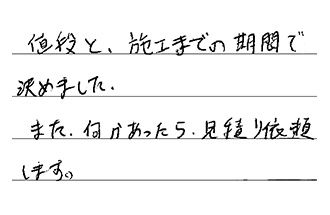 値段と、施工までの期間で
決めました.
また、何かあったら、見積り依頼
します。